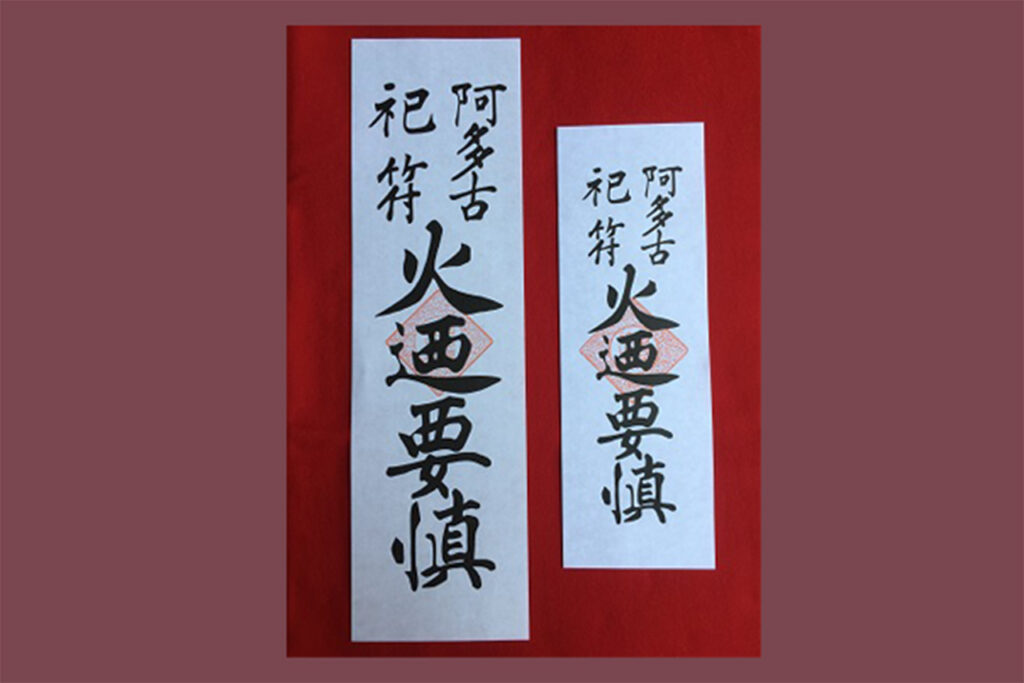 阿多古
祀符
火迺要慎
阿多古
祀符
火迺要慎